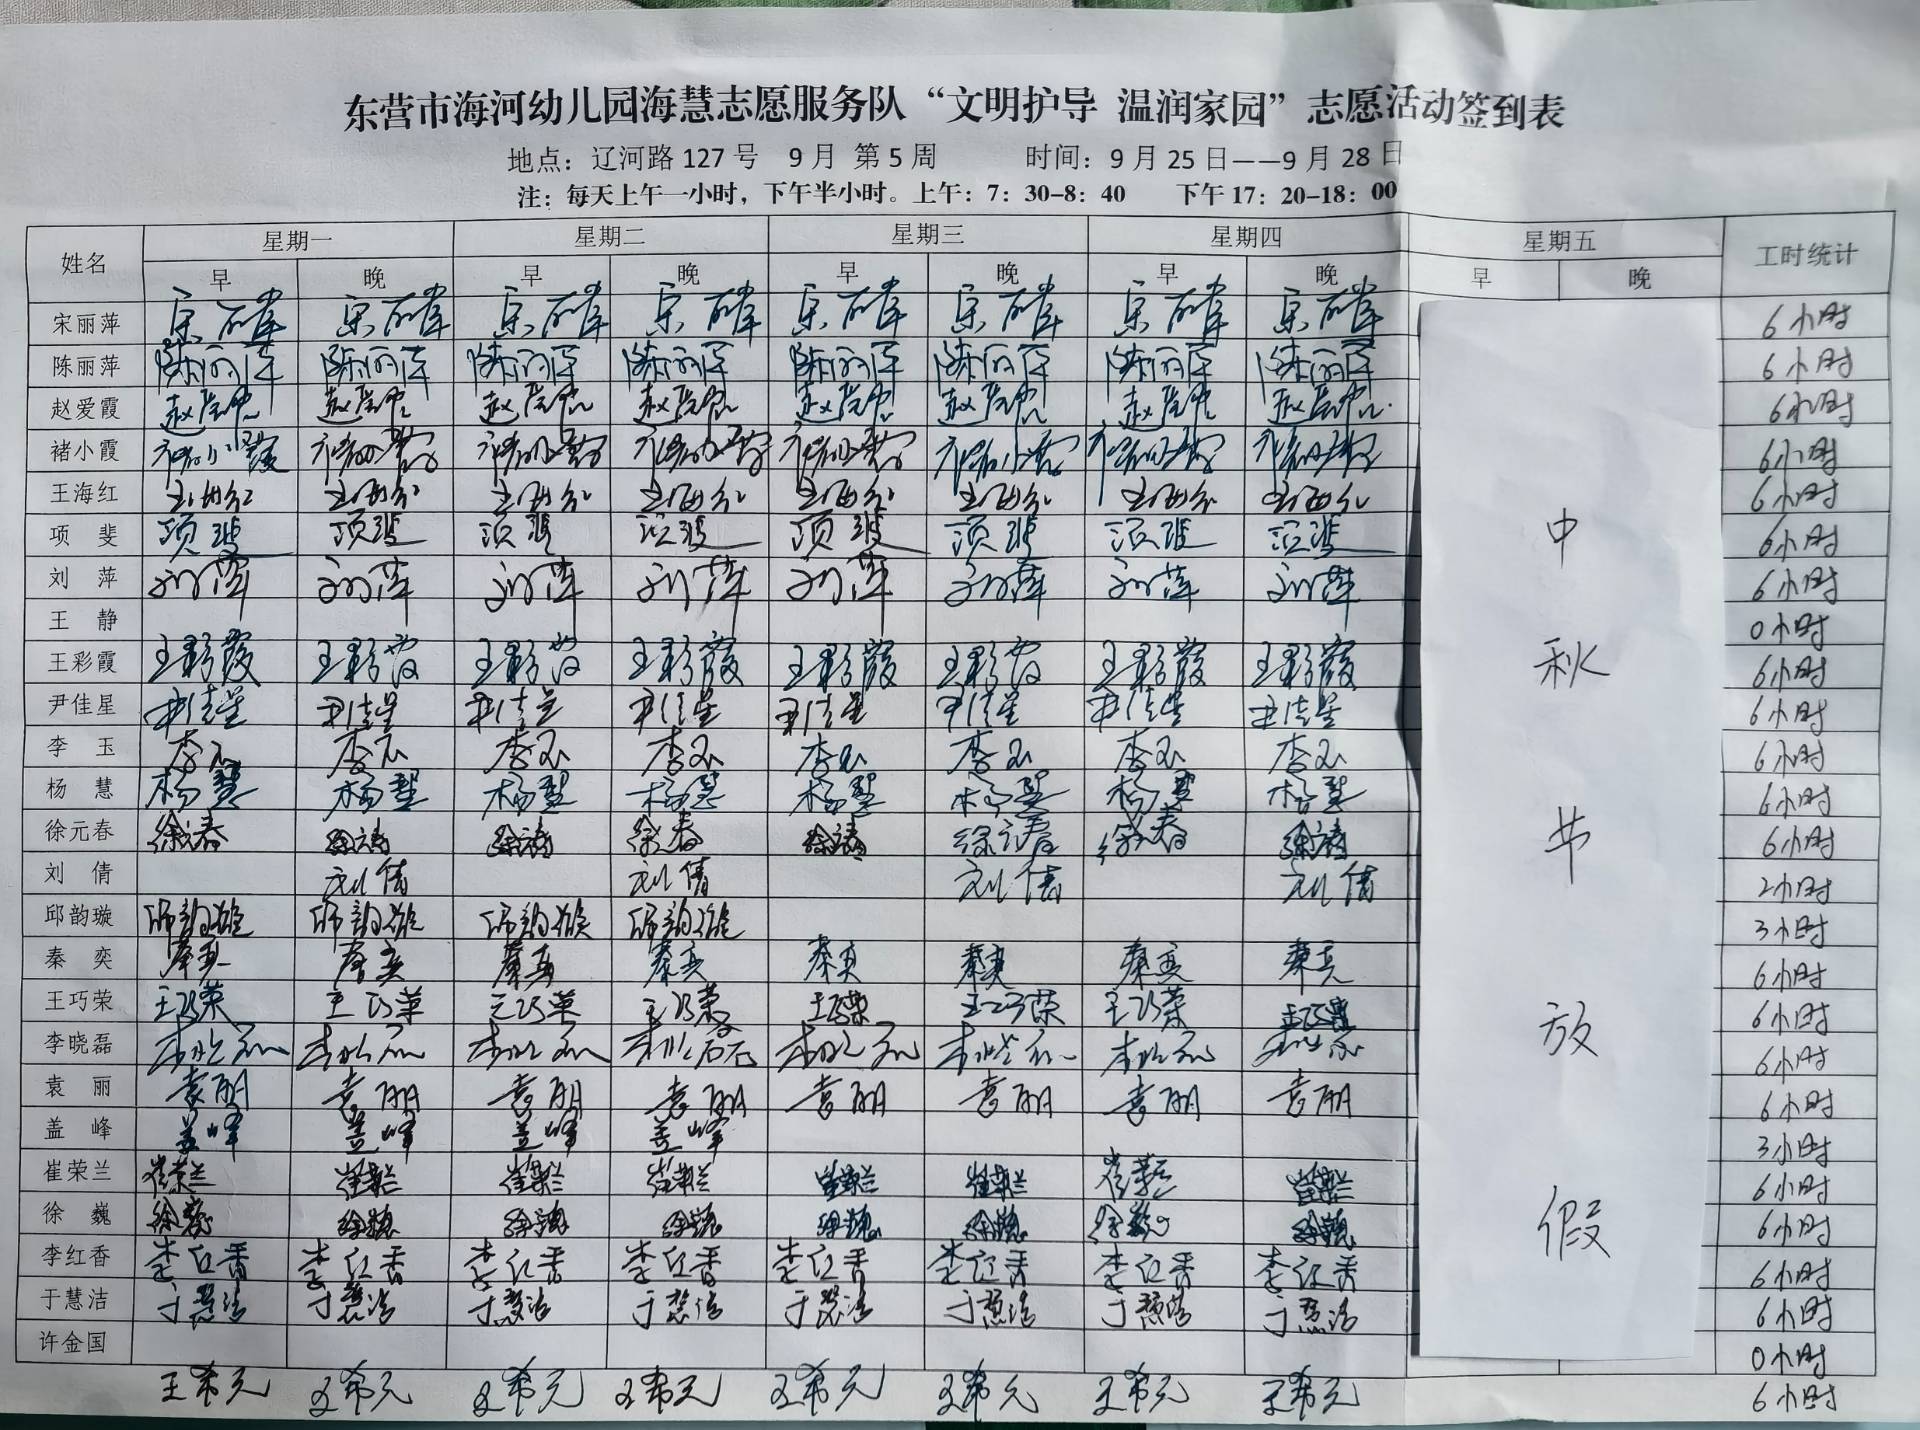 东营市海河幼儿园海慧志愿服务队“文明护导 温润家园”志愿活动签到表
地点：辽河路 127 号 9 月 第 5 周 时间：9 月 25 日——9 月 28 日
注：每天上午一小时，下午半小时。上午：7：30-8：40 下午 17：20-18：00
姓名 星期一 星期二 星期三 星期四 星期五 工时统计
早 晚 早 晚 早 晚 早 晚 早 晚
宋丽萍 宋丽萍 宋丽萍 宋丽萍 宋丽萍 宋丽萍 宋丽萍 宋丽萍 宋丽萍 6小时
陈丽萍 陈丽萍 陈丽萍 陈丽萍 陈丽萍 陈丽萍 陈丽萍 陈丽萍 陈丽萍 6小时
赵爱霞 赵爱霞 赵爱霞 赵爱霞 赵爱霞 赵爱霞 赵爱霞 赵爱霞 赵爱霞 6小时
褚小霞 褚小霞 褚小霞 褚小霞 褚小霞 褚小霞 褚小霞 褚小霞 褚小霞 6小时
王海红 王海红 王海红 王海红 王海红 王海红 王海红 王海红 王海红 6小时
项斐 项斐 项斐 项斐 项斐 项斐 项斐 项斐 项斐 6小时
刘萍 刘萍 刘萍 刘萍 刘萍 刘萍 刘萍 刘萍 刘萍 6小时
王静 0小时
王彩霞 王彩霞 王彩霞 王彩霞 王彩霞 王彩霞 王彩霞 王彩霞 王彩霞 6小时
尹佳星 尹佳星 尹佳星 尹佳星 尹佳星 尹佳星 尹佳星 尹佳星 尹佳星 6小时
李玉 李玉 李玉 李玉 李玉 李玉 李玉 李玉 李玉 6小时
杨慧 杨慧 杨慧 杨慧 杨慧 杨慧 杨慧 杨慧 杨慧 6小时
徐元春 徐元春 徐元春 徐元春 徐元春 徐元春 徐元春 徐元春 徐元春 6小时
刘倩 刘倩 刘倩 刘倩 刘倩 2小时
邱韵璇 邱韵璇 邱韵璇 邱韵璇 邱韵璇 3小时
秦奕 秦奕 秦奕 秦奕 秦奕 秦奕 秦奕 秦奕 秦奕 6小时
王巧荣 王巧荣 王巧荣 王巧荣 王巧荣 王巧荣 王巧荣 王巧荣 王巧荣 6小时
李晓磊 李晓磊 李晓磊 李晓磊 李晓磊 李晓磊 李晓磊 李晓磊 李晓磊 6小时
袁丽 袁丽 袁丽 袁丽 袁丽 袁丽 袁丽 袁丽 袁丽 6小时
盖峰 盖峰 盖峰 盖峰 盖峰 3小时
崔荣兰 崔荣兰 崔荣兰 崔荣兰 崔荣兰 崔荣兰 崔荣兰 崔荣兰 崔荣兰 6小时
徐巍 徐巍 徐巍 徐巍 徐巍 徐巍 徐巍 徐巍 徐巍 6小时
李红香 李红香 李红香 李红香 李红香 李红香 李红香 李红香 李红香 6小时
于慧洁 于慧洁 于慧洁 于慧洁 于慧洁 于慧洁 于慧洁 于慧洁 于慧洁 6小时
许金国 0小时
王希元 王希元 王希元 王希元 王希元 王希元 王希元 王希元 6小时
中秋节放假